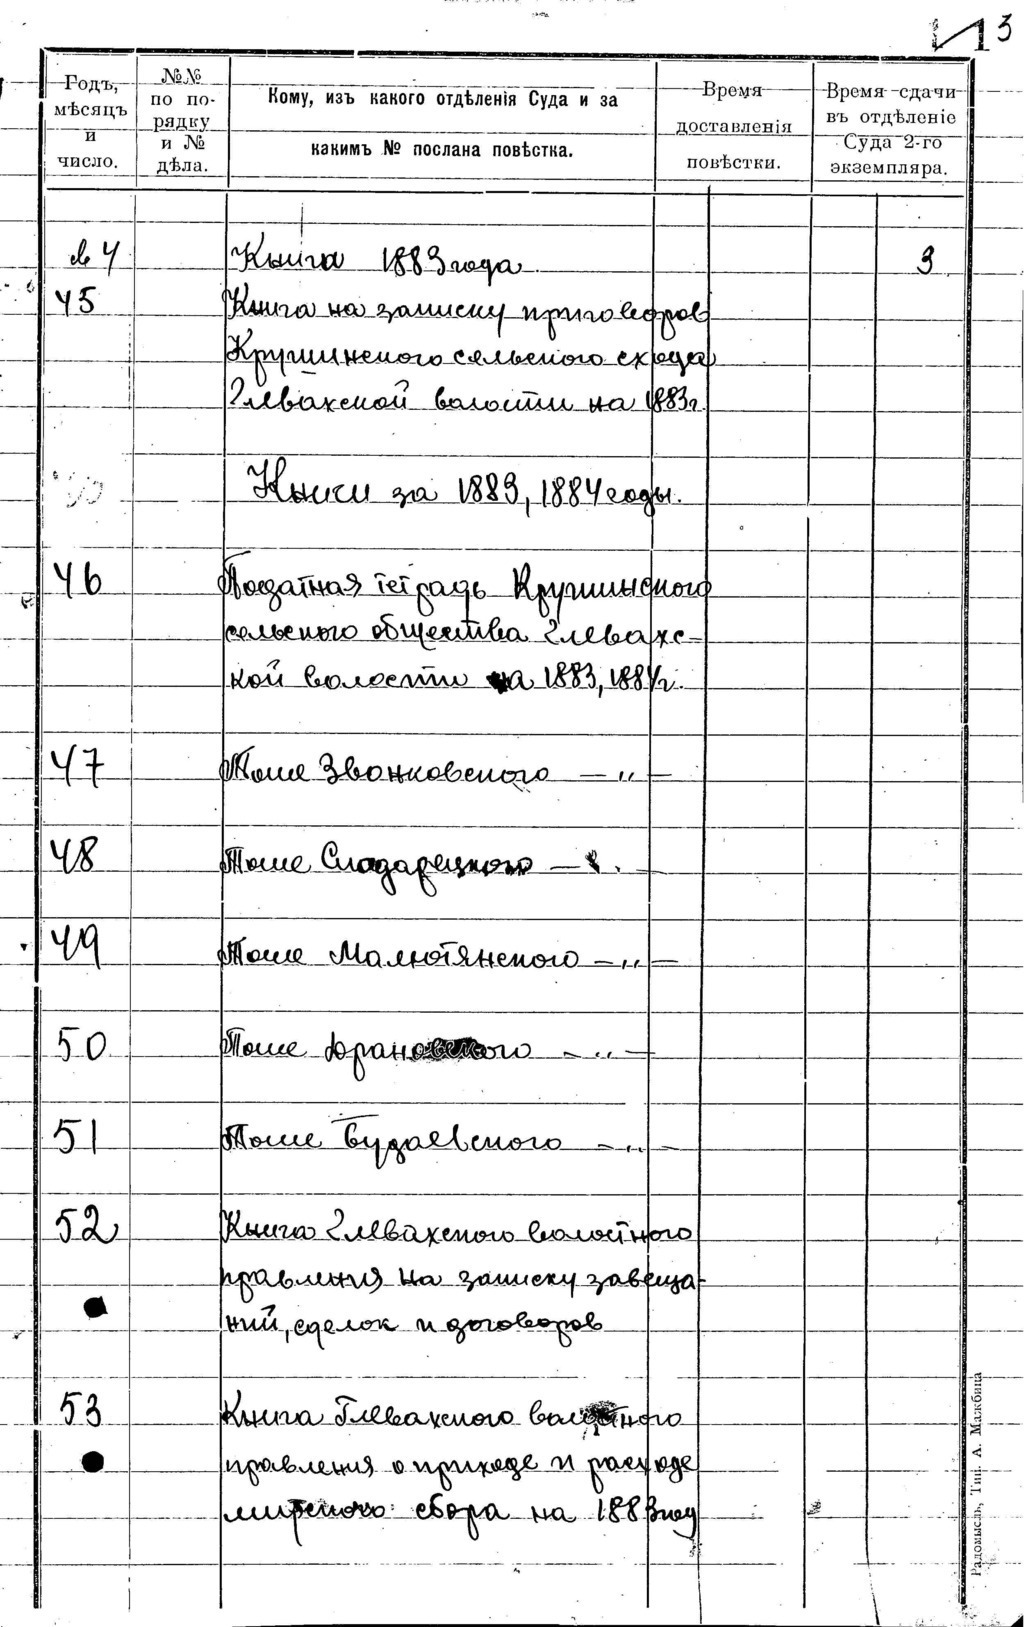 3
Годъ, мѣсяцъ и число.
№№ по по-рядку и № дѣла.
Кому, изъ какого отдѣленія Суда и за какимъ № послана повѣстка.
Время доставленія повѣстки.
Время сдачи въ отдѣленіе Суда 2-го экземпляра.
Книга 1883 года 3
45 Книга на записку приговоров
Крушинского сельского схода
Глевахской волости на 1883 г.
Книги за 1883, 1884 годы.
46 Податная тетрадь Крушинского
сельского общества Глевахс-
кой волости на 1883, 1884 г.
47 Тоже Звонковского — „ —
48 Тоже —
49 Тоже Малютянского — „ —
50 Тоже — „ —
51 Тоже Будаевского — „ —
52 Книга Глевахского волостного
правления на записку завеща-
ний, сделок и договоров
53 Книга Глевахского волостного
правления о приходе и расходе
мирского сбора на 1883 год
Радомысль, Тип. А. Мажбица